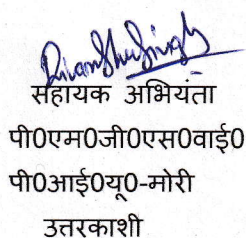 सहायक अभियंता
पी0एम0जी0एस0वाई0
पी0आई0यू0-मोरी
उत्तरकाशी